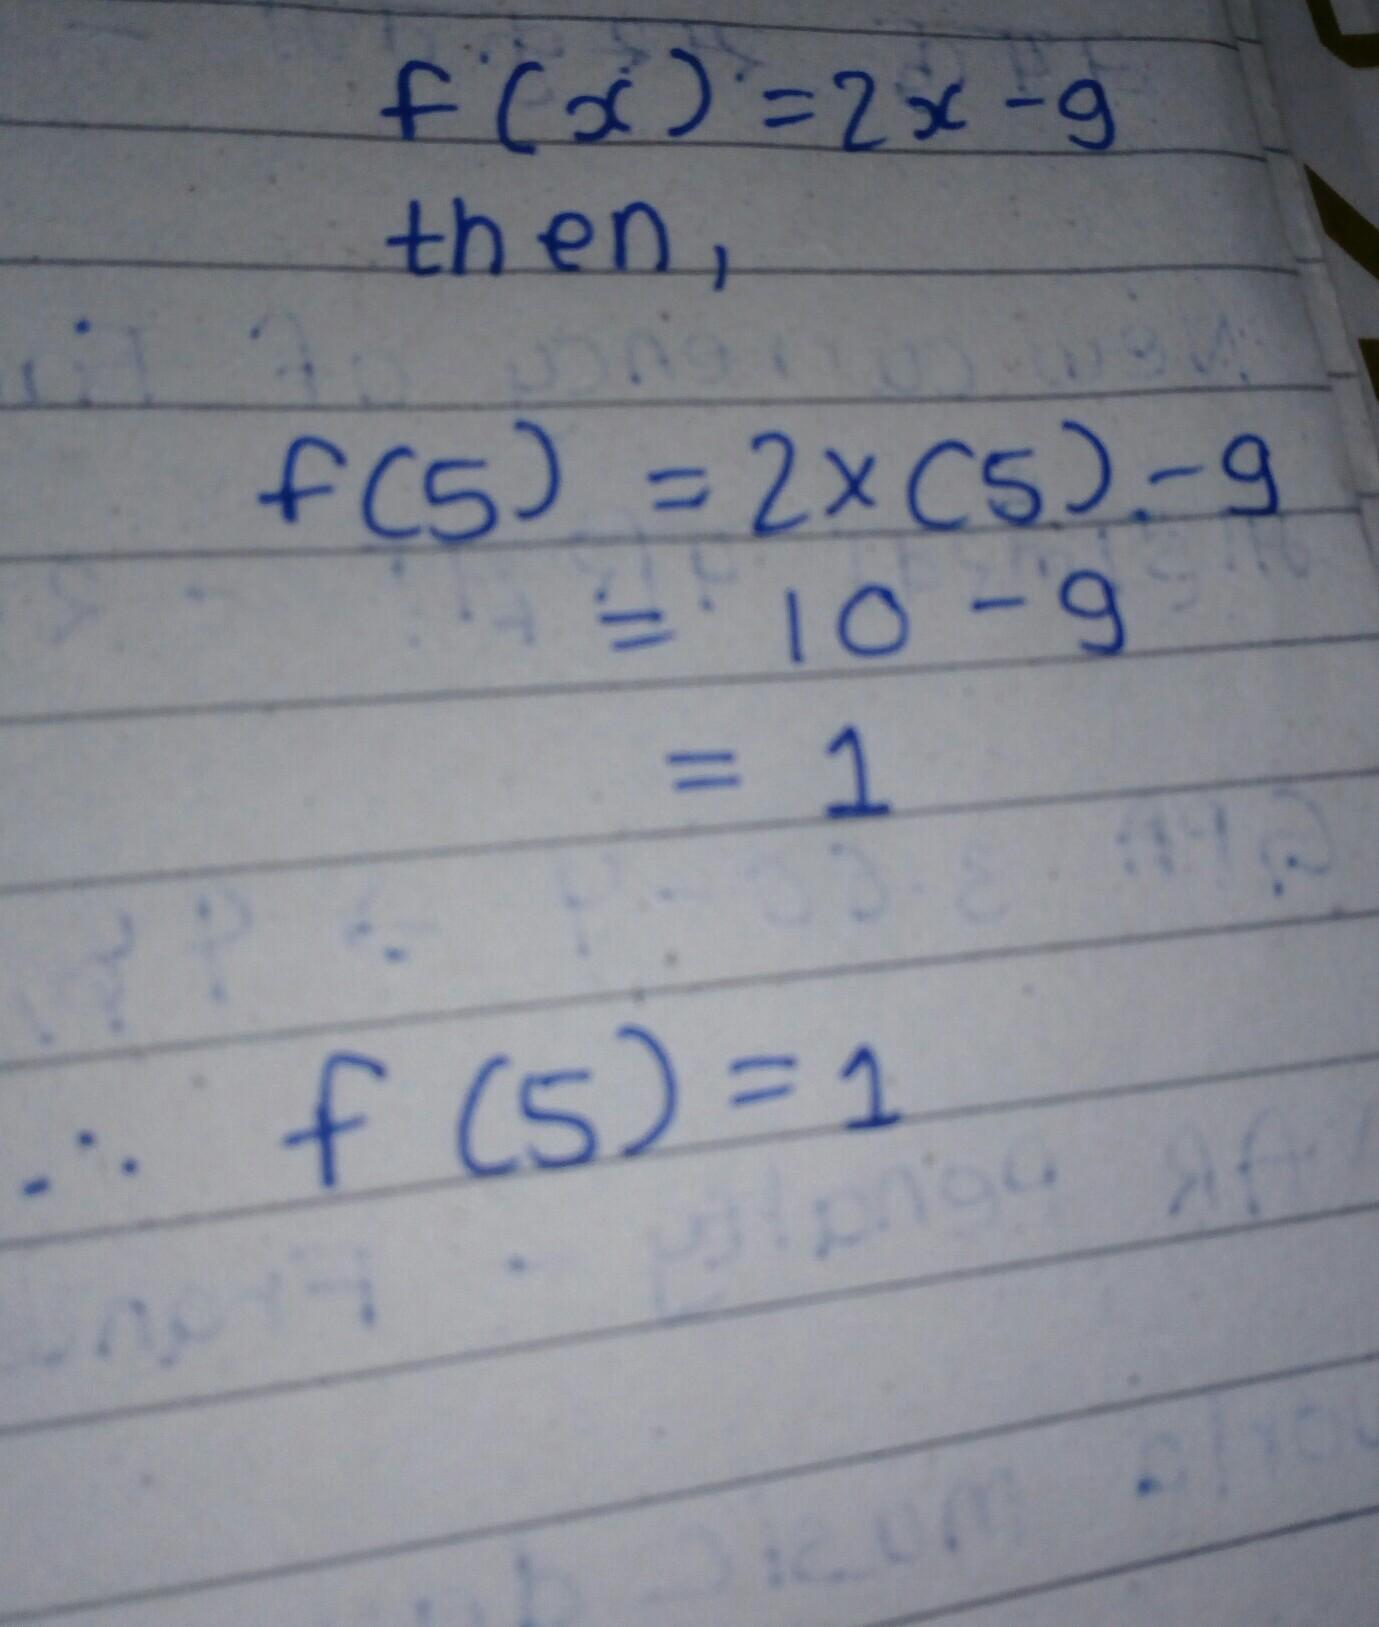 f(x) = 2x - 9
then,
f(5) = 2×(5) - 9
= 10 - 9
= 1
∴ f(5) = 1